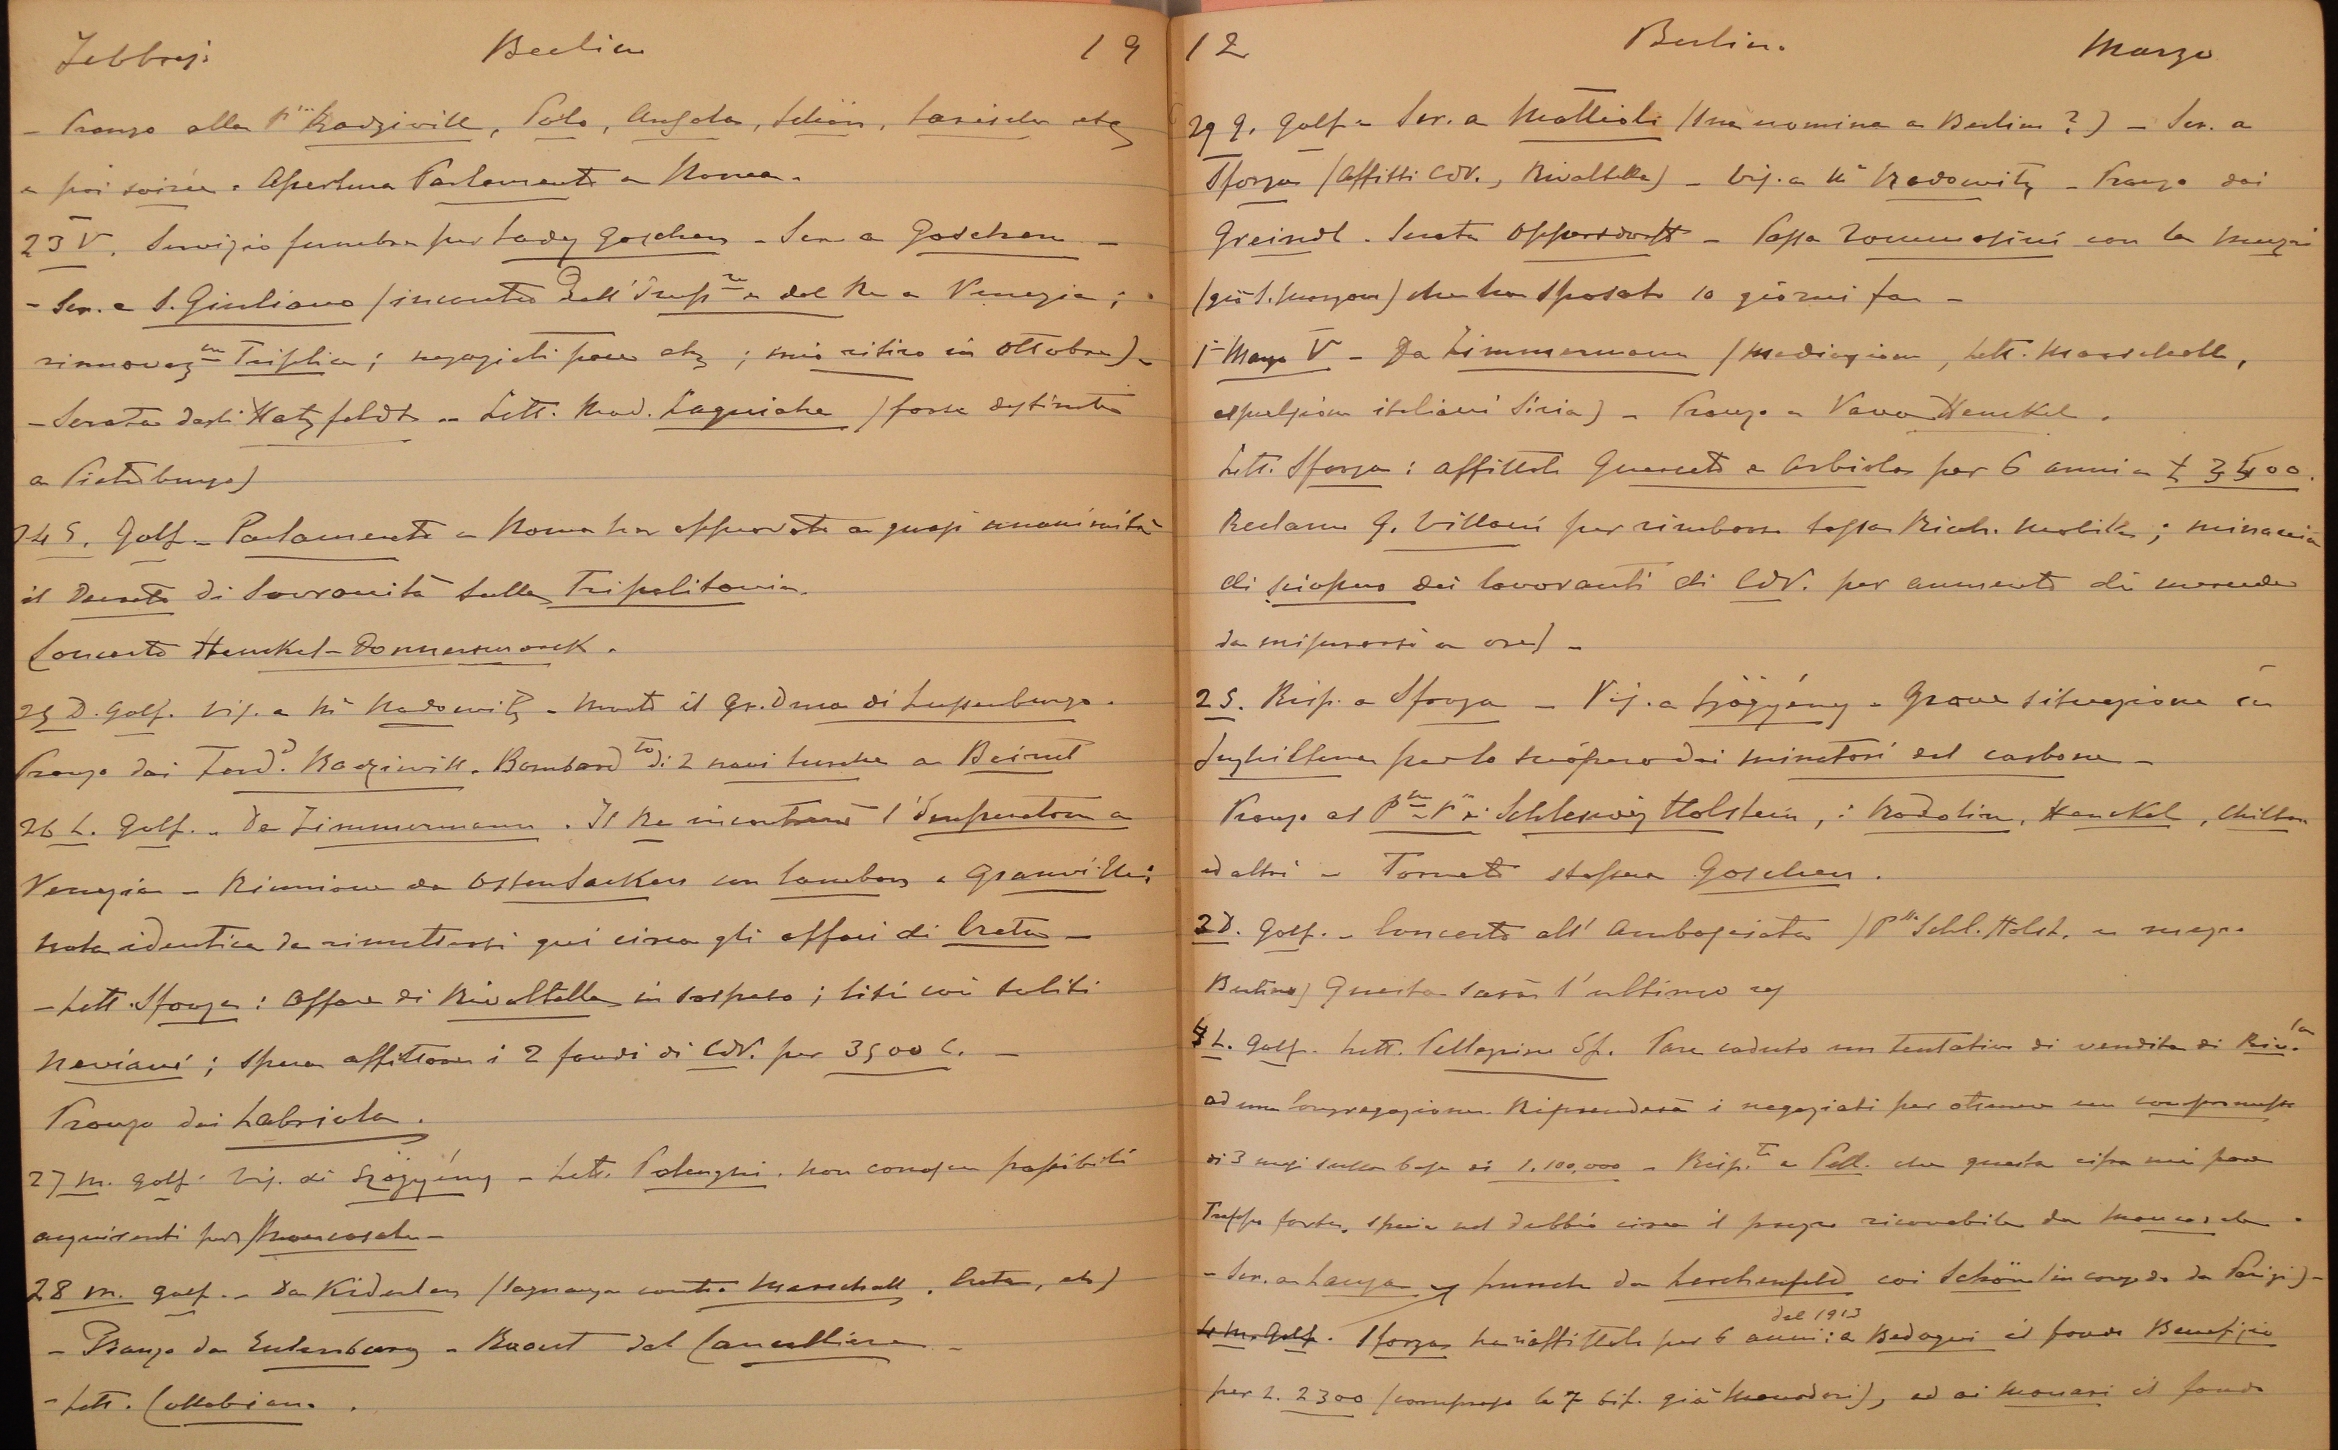 Febbraj: Berlin 19
- Pranzo alla P.ssa Radziwill, Polo, Schön, Larisch etc
e poi soirée. Apertura Parlamento a Roma.
23 V. Servizio funebre per Lady Goschen - Scr. a Goschen -
- Scr. a S. Giuliano (incontro dell'Imp.re e del Re a Venezia;
rinnovaz.ne Triplice; negoziati pace etc; mio ritiro in ottobre) -
- Serata dagli Hatzfeldt - Lett. Mad. Laguiche (forse destinato
a Pietroburgo)
24 S. Golf - Parlamento a Roma ha approvato a quasi unanimità
il Decreto di Sovranità sulla Tripolitania.
Concerto Henckel-Donnersmarck.
25 D. Golf. Vis. a M.e Radowitz - Morto il Gr. Duca di Lussemburgo.
Pranzo dai Ferd.d Radziwill. Bombard.to di 2 navi turche a Beirut
26 L. Golf. - Da Zimmermann. Il Re incontrerà l'Imperatore a
Venezia - Riunione da Osten Sacken con Cambon e Granville:
nota identica da rimettersi qui circa gli affari di Creta -
- Lett. Sforza: Affare di Rivaltella in sospeso; liti coi soliti
Naviani; spera affittare i 2 fondi di CdV. per 3500 L. -
Pranzo dai Labriola.
27 M. Golf. Vis. di Szögyény - Lett. Polenghi. Non conosce possibili
acquirenti per Mancasale -
28 M. Golf. - Da Kiderlen (lagnanza contro Marschall, Creta, etc)
- Pranzo da Eulenburg - Raout dal Cancelliere -
- Lett. Collobiano.
12 Berlin. Marzo
29 G. Golf - Scr. a Mattioli (sua nomina a Berlino?) - Scr. a
Sforza (affitti CdV., Rivaltella) - Vis. a M.e Radowitz - Pranzo dai
Greindl. Serata Oppersdorff - Passa Tommasini con la moglie
(già S. Morgan) che ha sposato 10 giorni fa -
1° Marzo V - Da Zimmermann (mediazione, lett. Marschall,
espulsione italiani Siria) - Pranzo a Vana Henckel.
Lett. Sforza: affittati Querceto e Arbiola per 6 anni a £ 3400.
Reclamo G. Villani per rimborso tassa Ricch. Mobile; minaccia
di sciopero dei lavoranti di CdV. per aumento di mercede
da misurarsi a ore) -
2 S. Risp. a Sforza - Vis. a Szögyény - Grave situazione in
Inghilterra per lo sciopero dei minatori del carbone -
Pranzo al P.pe e P.ssa Schleswig Holstein, i Radolin, Henckel,
ed altri - Tornato stassera Goschen.
3 D. Golf. - Concerto all'Ambasciata (P.ssa Schl. Holst. e mezza
Berlino) Questo sarà l'ultimo
4 L. Golf. Lett. Pellegrino Sf. Pare caduto un tentativo di vendita di Riv.la
ad una Congregazione. Riprenderà i negoziati per ottenere un compromesso
di 3 mesi sulla base di L. 100,000 - Risp.to a Pell. che questa cifra mi pare
troppo forte, specie nel dubbio circa il prezzo ricavabile da Mancasale.
- Scr. a Lanza - Lunch da Lerchenfeld coi Schön (in congedo da Parigi) -
4 M. Golf. Sforza ha riaffittato per 6 anni: a Bedogni il fondo Benefizio
dal 1913
per L. 2300 (compreso le 7 bif. già Manodori), ed ai Monari il fondo